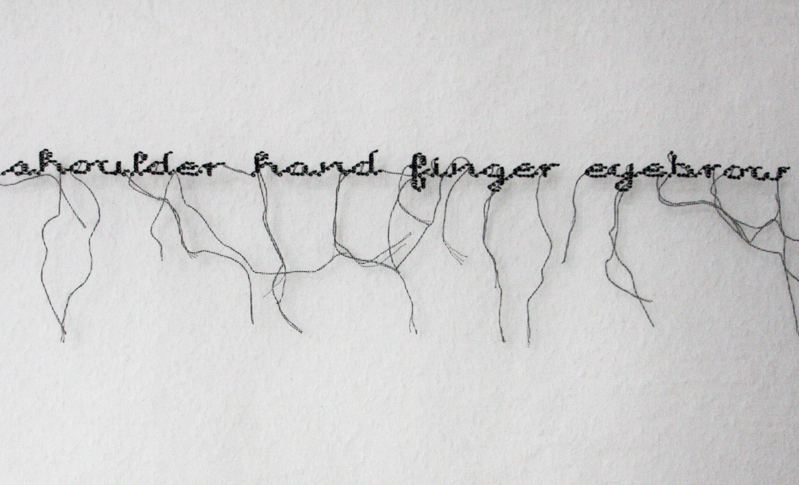 shoulder hand finger eyebrow